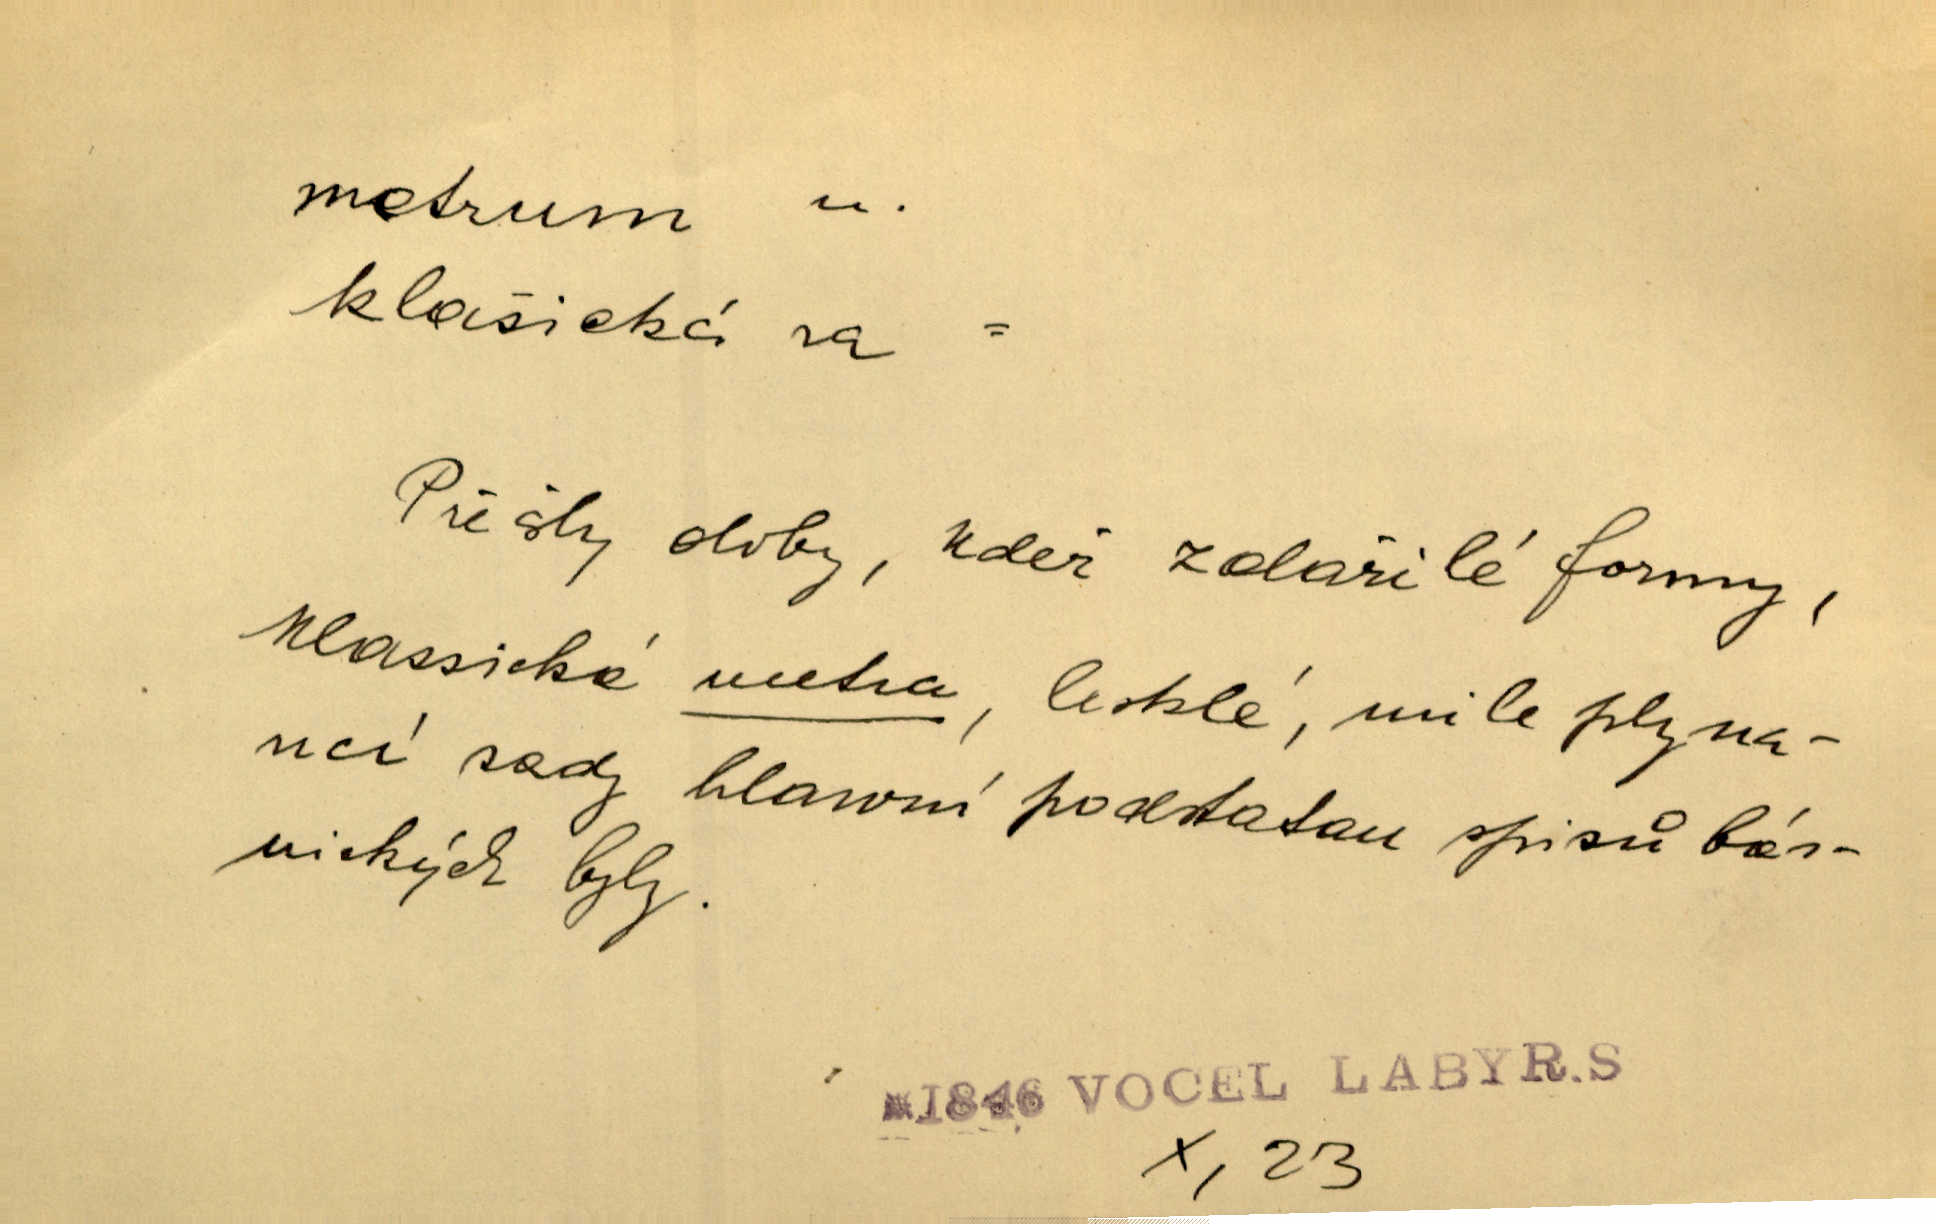 metrum n.
klasická ra =
Přěšly doby, kdež zdařilé formy,
klassická metra, lesklé, mile plyna-
ucí rady hlawní podstatau spisů bás-
nických byly.
*1846 VOCEL LABYR.S
X, 23